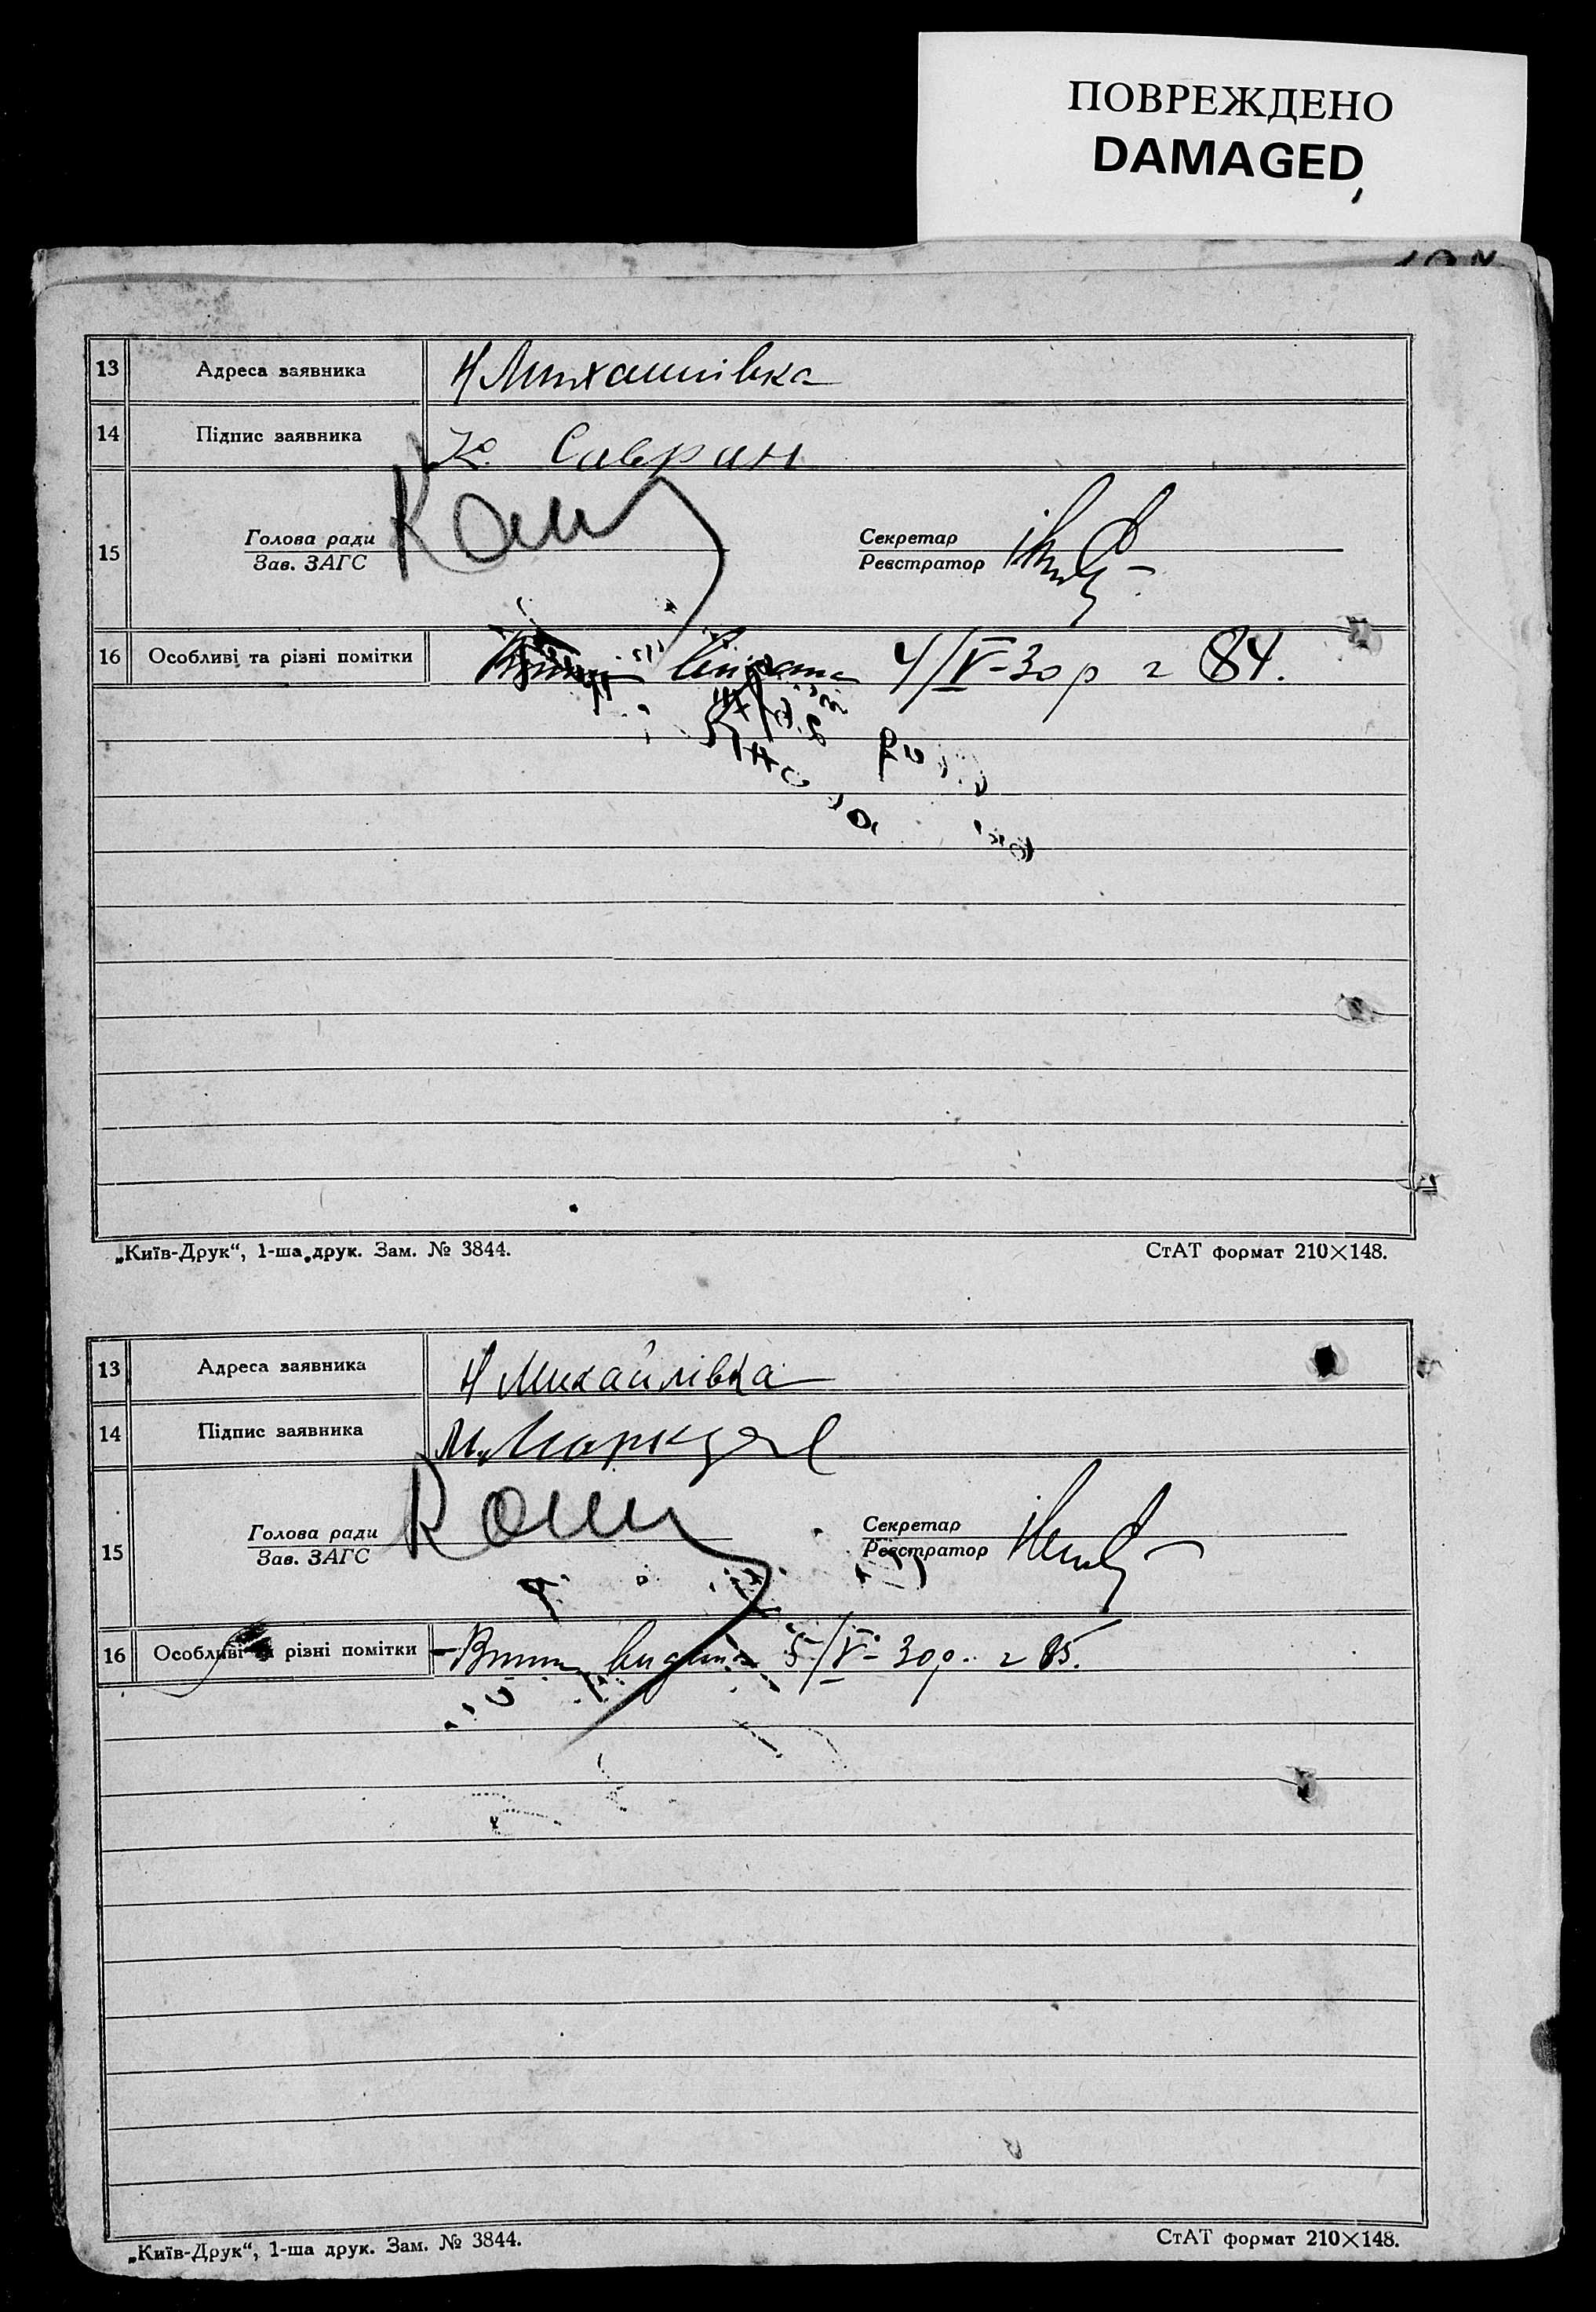 ПОВРЕЖДЕНО
DAMAGED
13 Адреса заявника Н Михайлівка
14 Підпис заявника К. Савран
15 Голова ради
Зав. ЗАГС
Секретар
Реєстратор
16 Особливі та різні помітки видана 4/V-30 р 84.
„Київ-Друк“, 1-ша друк. Зам. № 3844. СтАТ формат 210×148.
13 Адреса заявника Н Михайлівка
14 Підпис заявника М.
15 Голова ради
Зав. ЗАГС
Секретар
Реєстратор
16 Особливі та різні помітки видана 5/V-30р. 85.
„Київ-Друк“, 1-ша друк. Зам. № 3844. СтАТ формат 210×148.